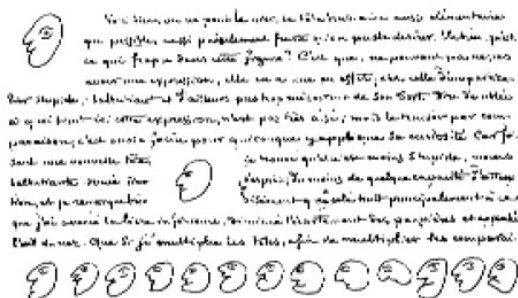 Voici bien, on ne peut le nier, la tête humaine aussi élémentaire
que possible, aussi puérilement fruste qu'on puisse la désirer. Eh bien, qu'est-
ce qui frappe dans cette figure? C'est que, ne pouvant pas ne pas
avoir une expression, elle en a une en effet; c'est celle d'un particu-
lier stupide, balbutiant et d'ailleurs pas trop mécontent de son sort. Dire d'emblée
à quoi tient ici cette expression, n'est pas très aisé; mais le trouver par com-
paraison, c'est chose facile pour quiconque y applique sa curiosité. Car fai-
sant une nouvelle tête, je trouve qu'elle est moins stupide, moins
balbutiante, douée sinon d'esprit, du moins de quelque capacité d'atten-
tion, et je que cela tient principalement à ce
que j'ai avancé la lèvre inférieure, diminué l'écartement des paupières et approché
l'œil du nez. Que si je multiplie les têtes, afin de multiplier les comparai-